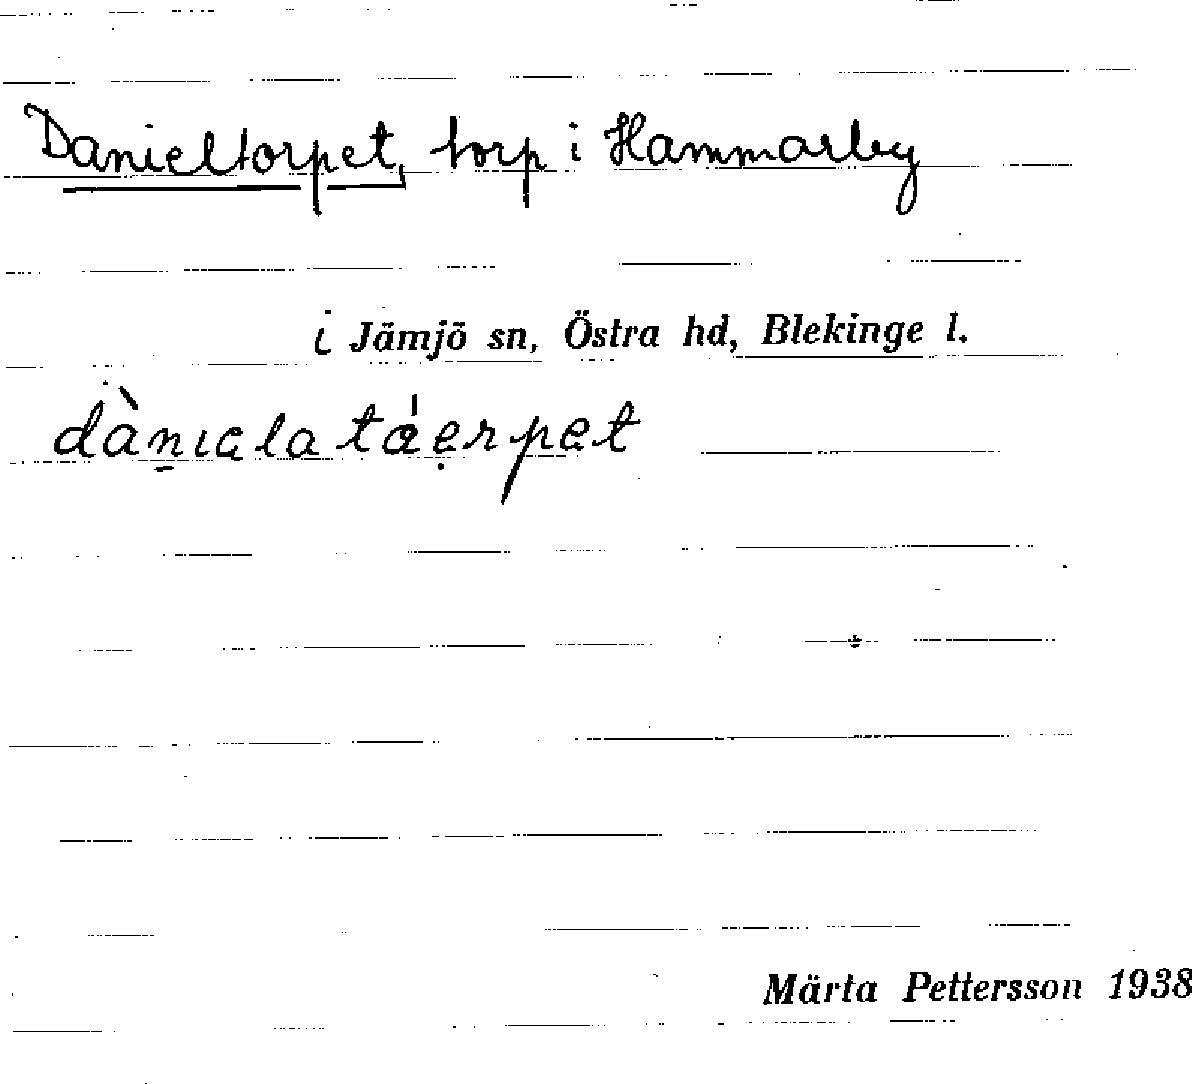 Danieltorpet, torp i Hammarby
i Jämjö sn, Östra hd, Blekinge l.
dàniela táerpet
Märta Pettersson 1938